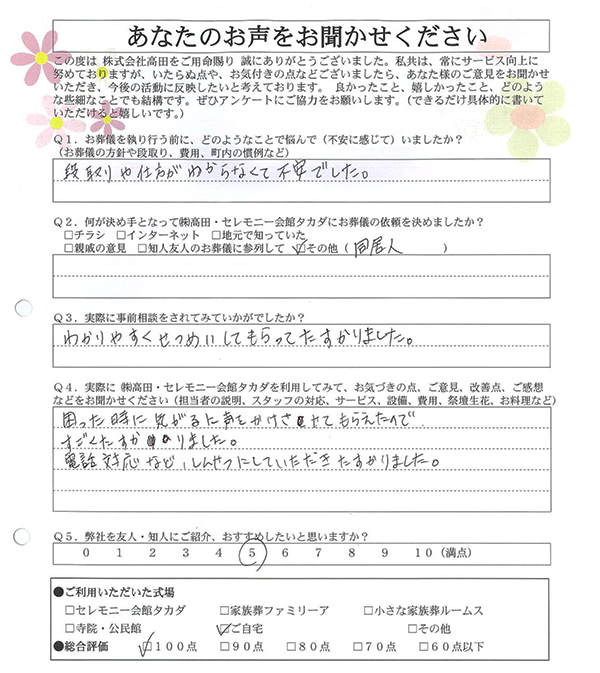 あなたのお声をお聞かせください
この度は 株式会社高田をご用命賜り 誠にありがとうございました。私共は、常にサービス向上に
努めておりますが、いたらぬ点や、お気付きの点などございましたら、あなた様のご意見をお聞かせ
いただき、今後の活動に反映したいと考えております。 良かったこと、嬉しかったこと、どのよう
な些細なことでも結構です。ぜひアンケートにご協力をお願いします。(できるだけ具体的に書いて
いただけると嬉しいです。)
Q1．お葬儀を執り行う前に、どのようなことで悩んで（不安に感じて）いましたか？
(お葬儀の方針や段取り、費用、町内の慣例など)
段取りや仕方がわからなくて不安でした。
Q2．何が決め手となって㈱高田・セレモニー会館タカダにお葬儀の依頼を決めましたか？
□チラシ □インターネット □地元で知っていた
□親戚の意見 □知人友人のお葬儀に参列して ☑その他（ 同居人 ）
Q3．実際に事前相談をされてみていかがでしたか？
わかりやすくせつめいしてもらってたすかりました。
Q4．実際に ㈱高田・セレモニー会館タカダを利用してみて、お気づきの点、ご意見、改善点、ご感想
などをお聞かせください（担当者の説明、スタッフの対応、サービス、設備、費用、祭壇生花、お料理など）
困った時に気がるに声をかけさせてもらえたので
すごくたすかりました。
電話対応など、しんせつにしていただきたすかりました。
Q5．弊社を友人・知人にご紹介、おすすめしたいと思いますか？
0 1 2 3 4 5 6 7 8 9 10 (満点)
●ご利用いただいた式場
□セレモニー会館タカダ □家族葬ファミリーア □小さな家族葬ルームス
□寺院・公民館 ☑ご自宅 □その他
●総合評価 ☑100点 □90点 □80点 □70点 □60点以下